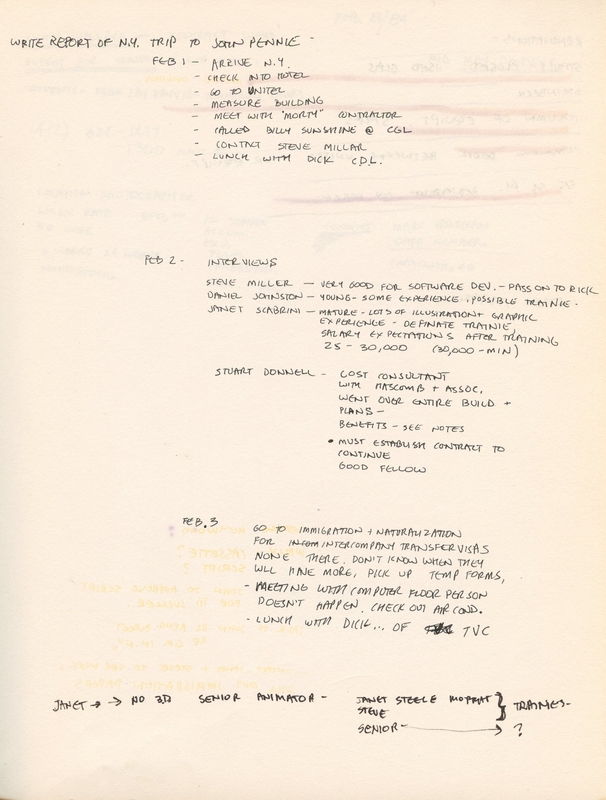 WRITE REPORT OF N.Y. TRIP TO JOHN PENNIE -
FEB 1 - ARRIVE N.Y.
- CHECK INTO HOTEL
- GO TO UNITEL
- MEASURE BUILDING
- MEET WITH "MORTY" CONTRACTOR
- CALLED BILLY SUNSHINE @ CGL
- CONTACT STEVE MILLAR
- LUNCH WITH DICK C.D.L.
FEB 2 - INTERVIEWS
STEVE MILLER - VERY GOOD FOR SOFTWARE DEV. - PASS ON TO RICK
DANIEL JOHNSTON - YOUNG - SOME EXPERIENCE, POSSIBLE TRAINIE -
JANET SCABRINI - MATURE - LOTS OF ILLUSTRATION + GRAPHIC
EXPERIENCE - DEFINATE TRAINIE,
SALARY EXPECTATIONS AFTER TRAINING
25 - 30,000 (30,000 - MIN)
STUART DONNELL - COST CONSULTANT
WITH HASCOMB + ASSOC.
WENT OVER ENTIRE BUILD +
PLANS -
BENEFITS - SEE NOTES
• MUST ESTABLISH CONTRACT TO
CONTINUE
GOOD FELLOW
FEB. 3 GO TO IMMIGRATION + NATURALIZATION
FOR INTERCOMPANY TRANSFER VISAS
NONE THERE. DON'T KNOW WHEN THEY
WILL HAVE MORE, PICK UP TEMP FORMS,
- MEETING WITH COMPUTER FLOOR PERSON
DOESN'T HAPPEN. CHECK OUT AIR COND.
- LUNCH WITH DICK... OF TVC
JANET → → NO 3D SENIOR ANIMATOR - JANET STEELE MOFFAT } TRAINIES -
STEVE
SENIOR - → ?